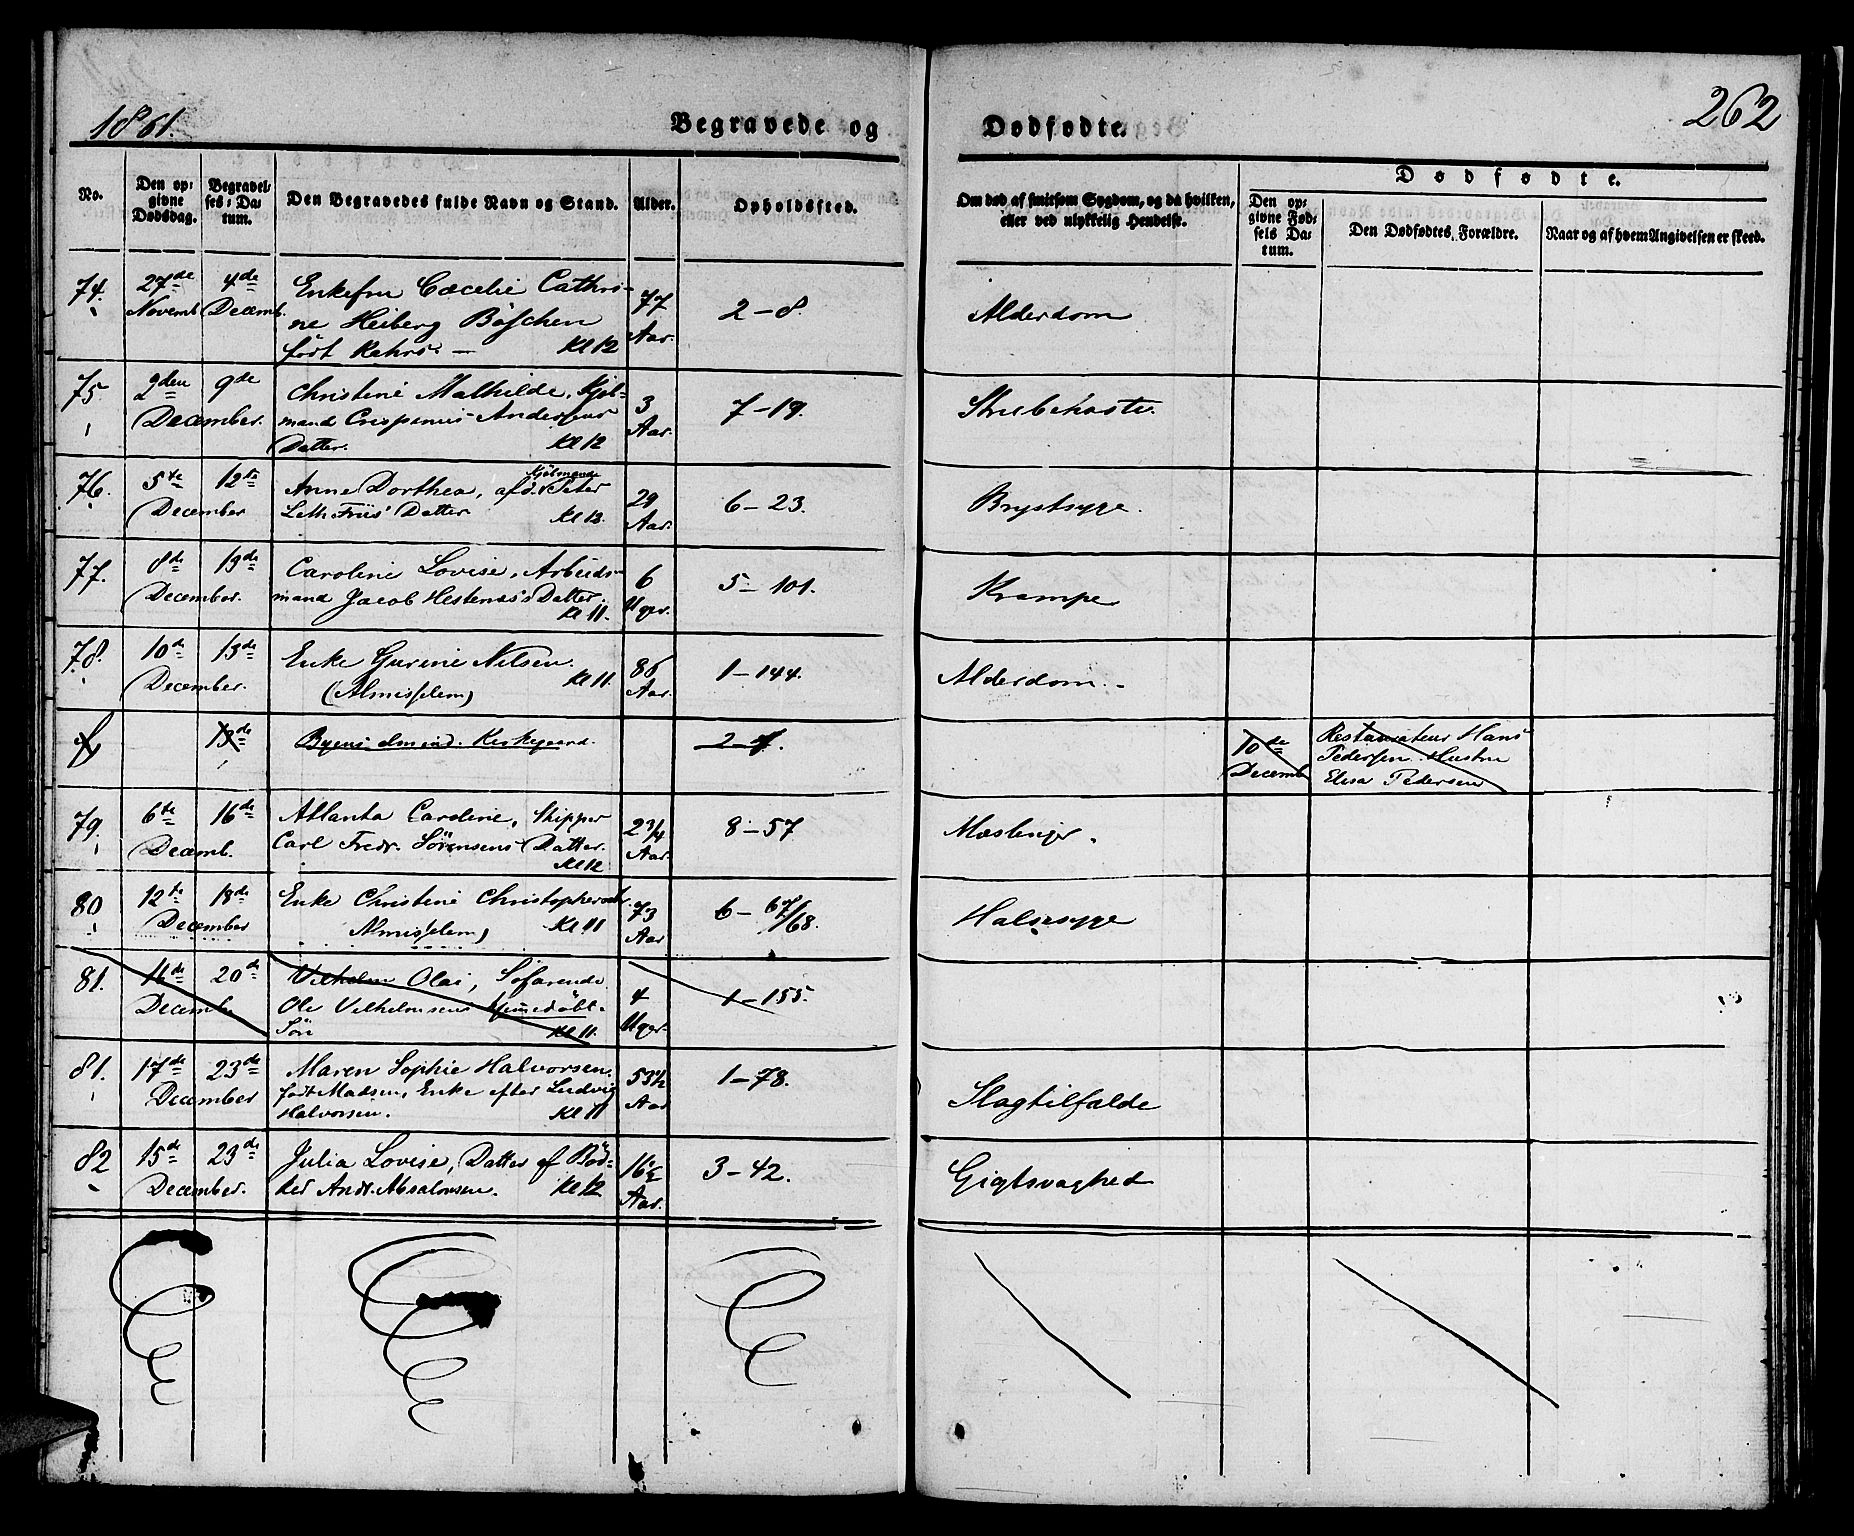 1861.
262
Begravede og Dødfødte.
No.
Den op-
givne
Dødsdag.
Begravel-
ses-Da-
tum.
Den Begravedes fulde Navn og Stand.
Alder.
Opholdssted.
Om død af smitsom Sygdom, og da hvilken,
eller ved ulykkelig Hendelse.
Dødfødte.
Den op-
givne Fød-
sels Da-
tum.
Den Dødfødtes Forældre.
Naar og af hvem Angivelsen er skeed.
74. 27de Novemb. 4de Decemb. Enkefru Cæcelie Cathri-
ne Heiberg Böschen
født Rahrs. — Kl 12
77 Aar. 2-8. Alderdom
75. 2den 9de December. Christine Mathilde, Kjøl-
mand Crispinus Andersens
Datter. Kl 12
3 Aar. 7-19. Strubehoste.
76. 5te 12te December Anne Dorthea, afd. Kjølmands Peter
Leth Friis' Datter Kl 12.
29 Aar. 6-23. Brystsyge.
77. 8de 13de December. Caroline Lovise, Arbeids-
mand Jacob Hestenæs's Datter.
Kl 11.
6 Uger. 5-101. Krampe
78. 10de 13de December. Enke Gurine Nilsen.
(Almisselem) Kl 11.
86 Aar. 1-144. Alderdom.
13de Byens almind. Kirkegaard. 2-7.
10de Decemb. Restaurateur Hans
Pedersen Hustru
Elisa Pedersen
79. 6te 16de Decemb. Atlanta Caroline, Skipper
Carl Fredr. Sörensens Datter.
Kl 12
2 3/4 Aar. 8-57 Mæslinger.
80 12te 18de December Enke Christine Christophersdr.
Almisselem) Kl 11
73 Aar 6-67/68. Halssyge
81. 20de December Vilhelm Olai, Søfarende
Ole Vilhelmsens hjemedøbt
Sön Kl 11.
4 Uger. 1-155.
81. 17de 23de December Maren Sophie Halvorsen.
født Madsen, Enke efter Ludvig
Halvorsen. Kl 11
53½ Aar 1-78. Slagtilfælde
82 15de 23de December. Julia Lovise, Datter af Bød-
ker Andr. Absalonsen. Kl 12
16½ Aar. 3-42. Gigtsvaghed